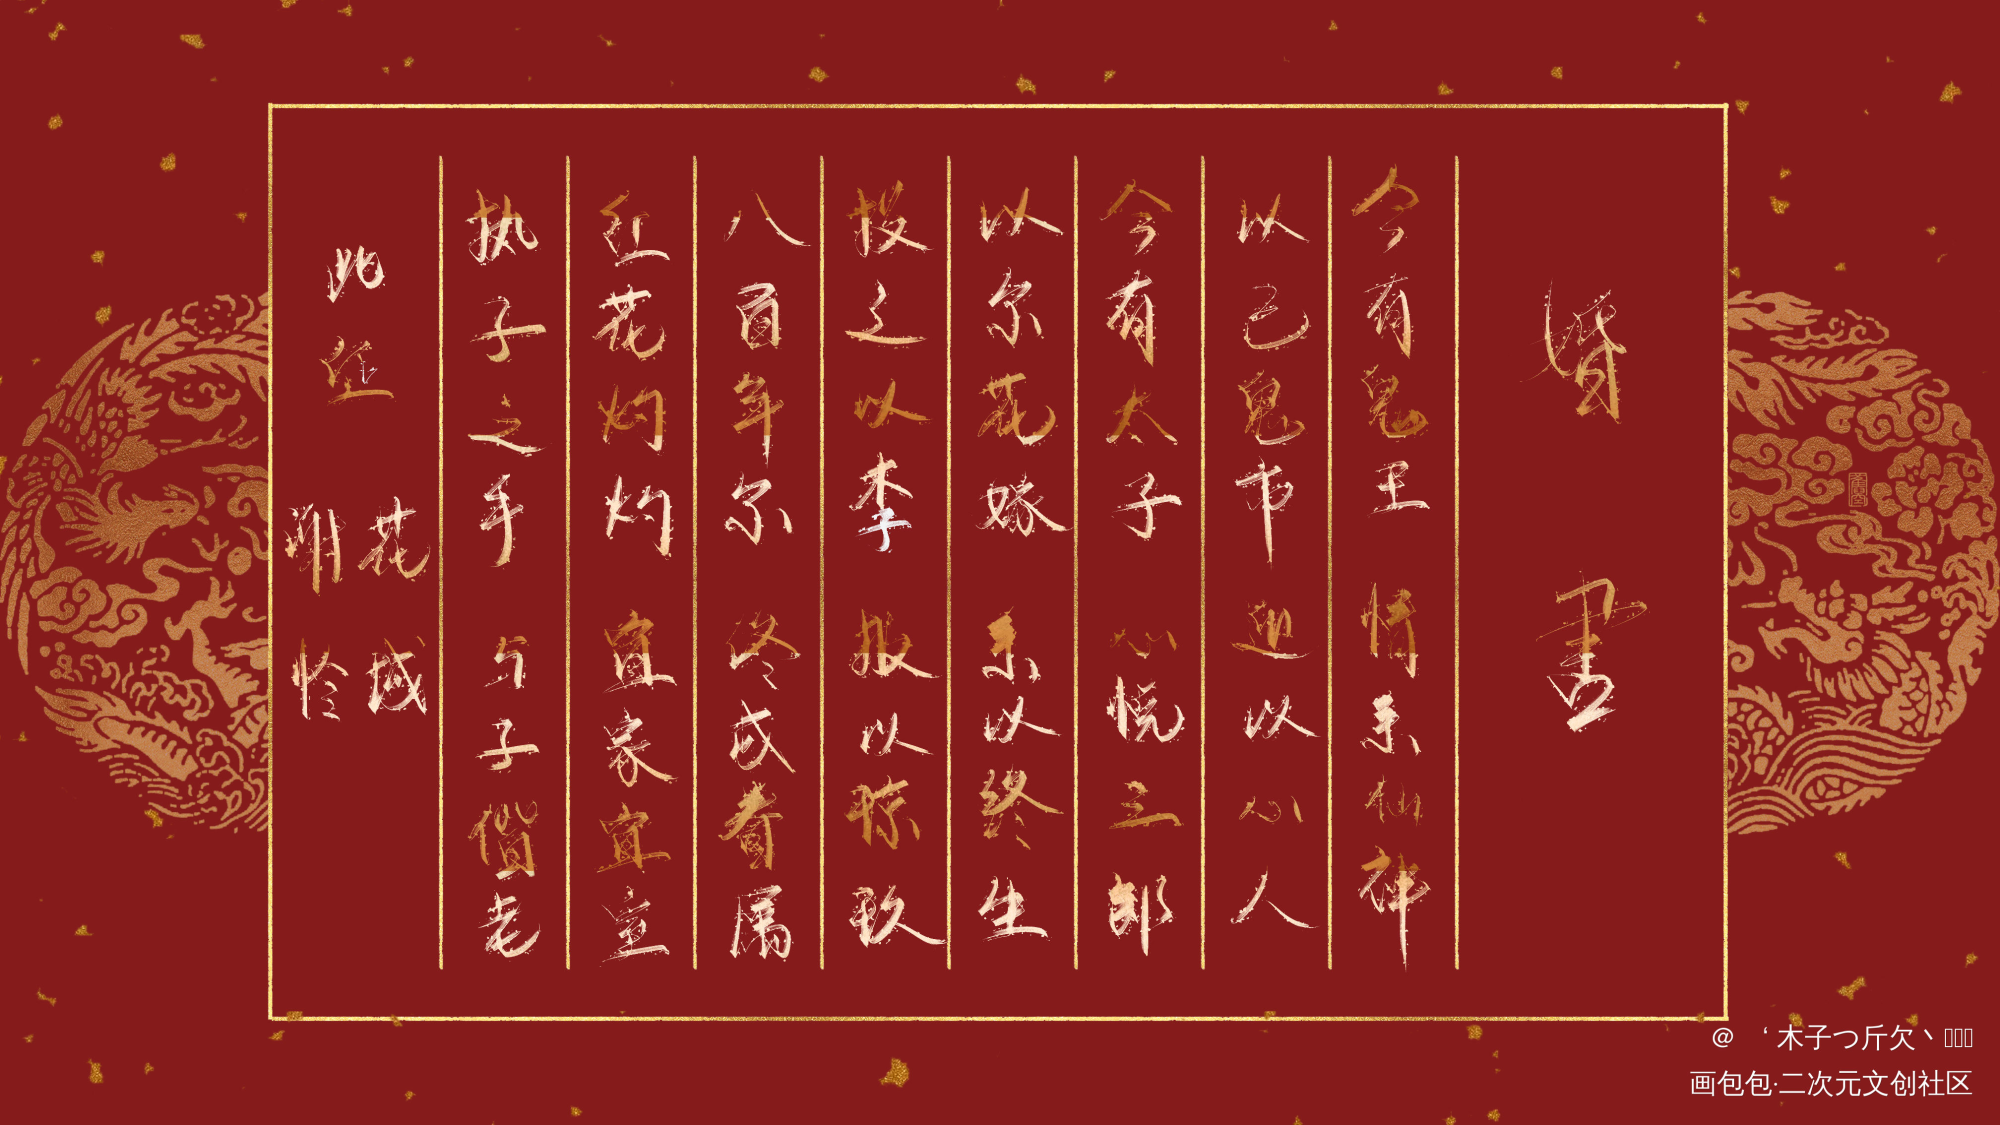 婚書
今有鬼王 情系仙神
以己鬼市 迎以心人
今有太子 心悦三郎
以尔花嫁 系以终生
投之以李 报以琼玖
八百年尔 终成眷属
红花灼灼 宜家宜室
执子之手 与子偕老
此证
花城
谢怜
@ ‘木子つ斤欠丶
画包包·二次元文创社区